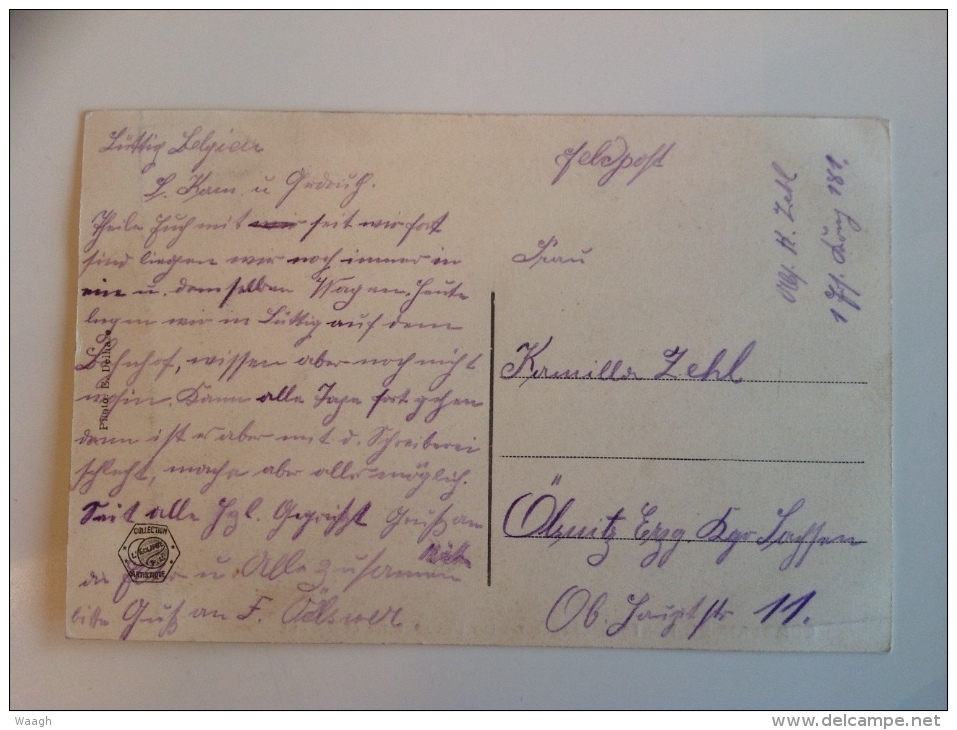 Lüttig Belgien
L. Kam. u Gertrud.
Theile Euch mit seit wir fort
sind liegen wir noch immer in
ein u. demselben Wagen. Heute
liegen wir in Lüttig auf dem
Bahnhof, wissen aber noch nicht
wohin. Kann alle Tage fort gehen
dann ist es aber mit d. Schreiberei
schlecht, mache aber alles möglich.
Seit alle Hzl. Gegrüßt Gruß an
die u. Alle zusammen
bitte Gruß an F.
Photo E. Delhaye
COLLECTION
ARTISTIQUE
Feldpost
Abs. K. Zehl
181.
Frau
Kamilla Zehl
Ölsnitz Erzg. Kgr Sachsen
Ob. Hauptstr 11.
Waagh
http://www.delcampe.net